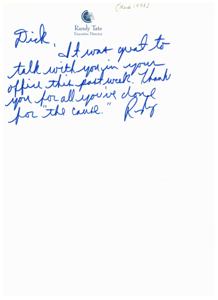 Randy Tate
Executive Director
Dick,
It was great to
talk with you in your
office this past week. Thank
you for all you've done
for "the cause."
Randy